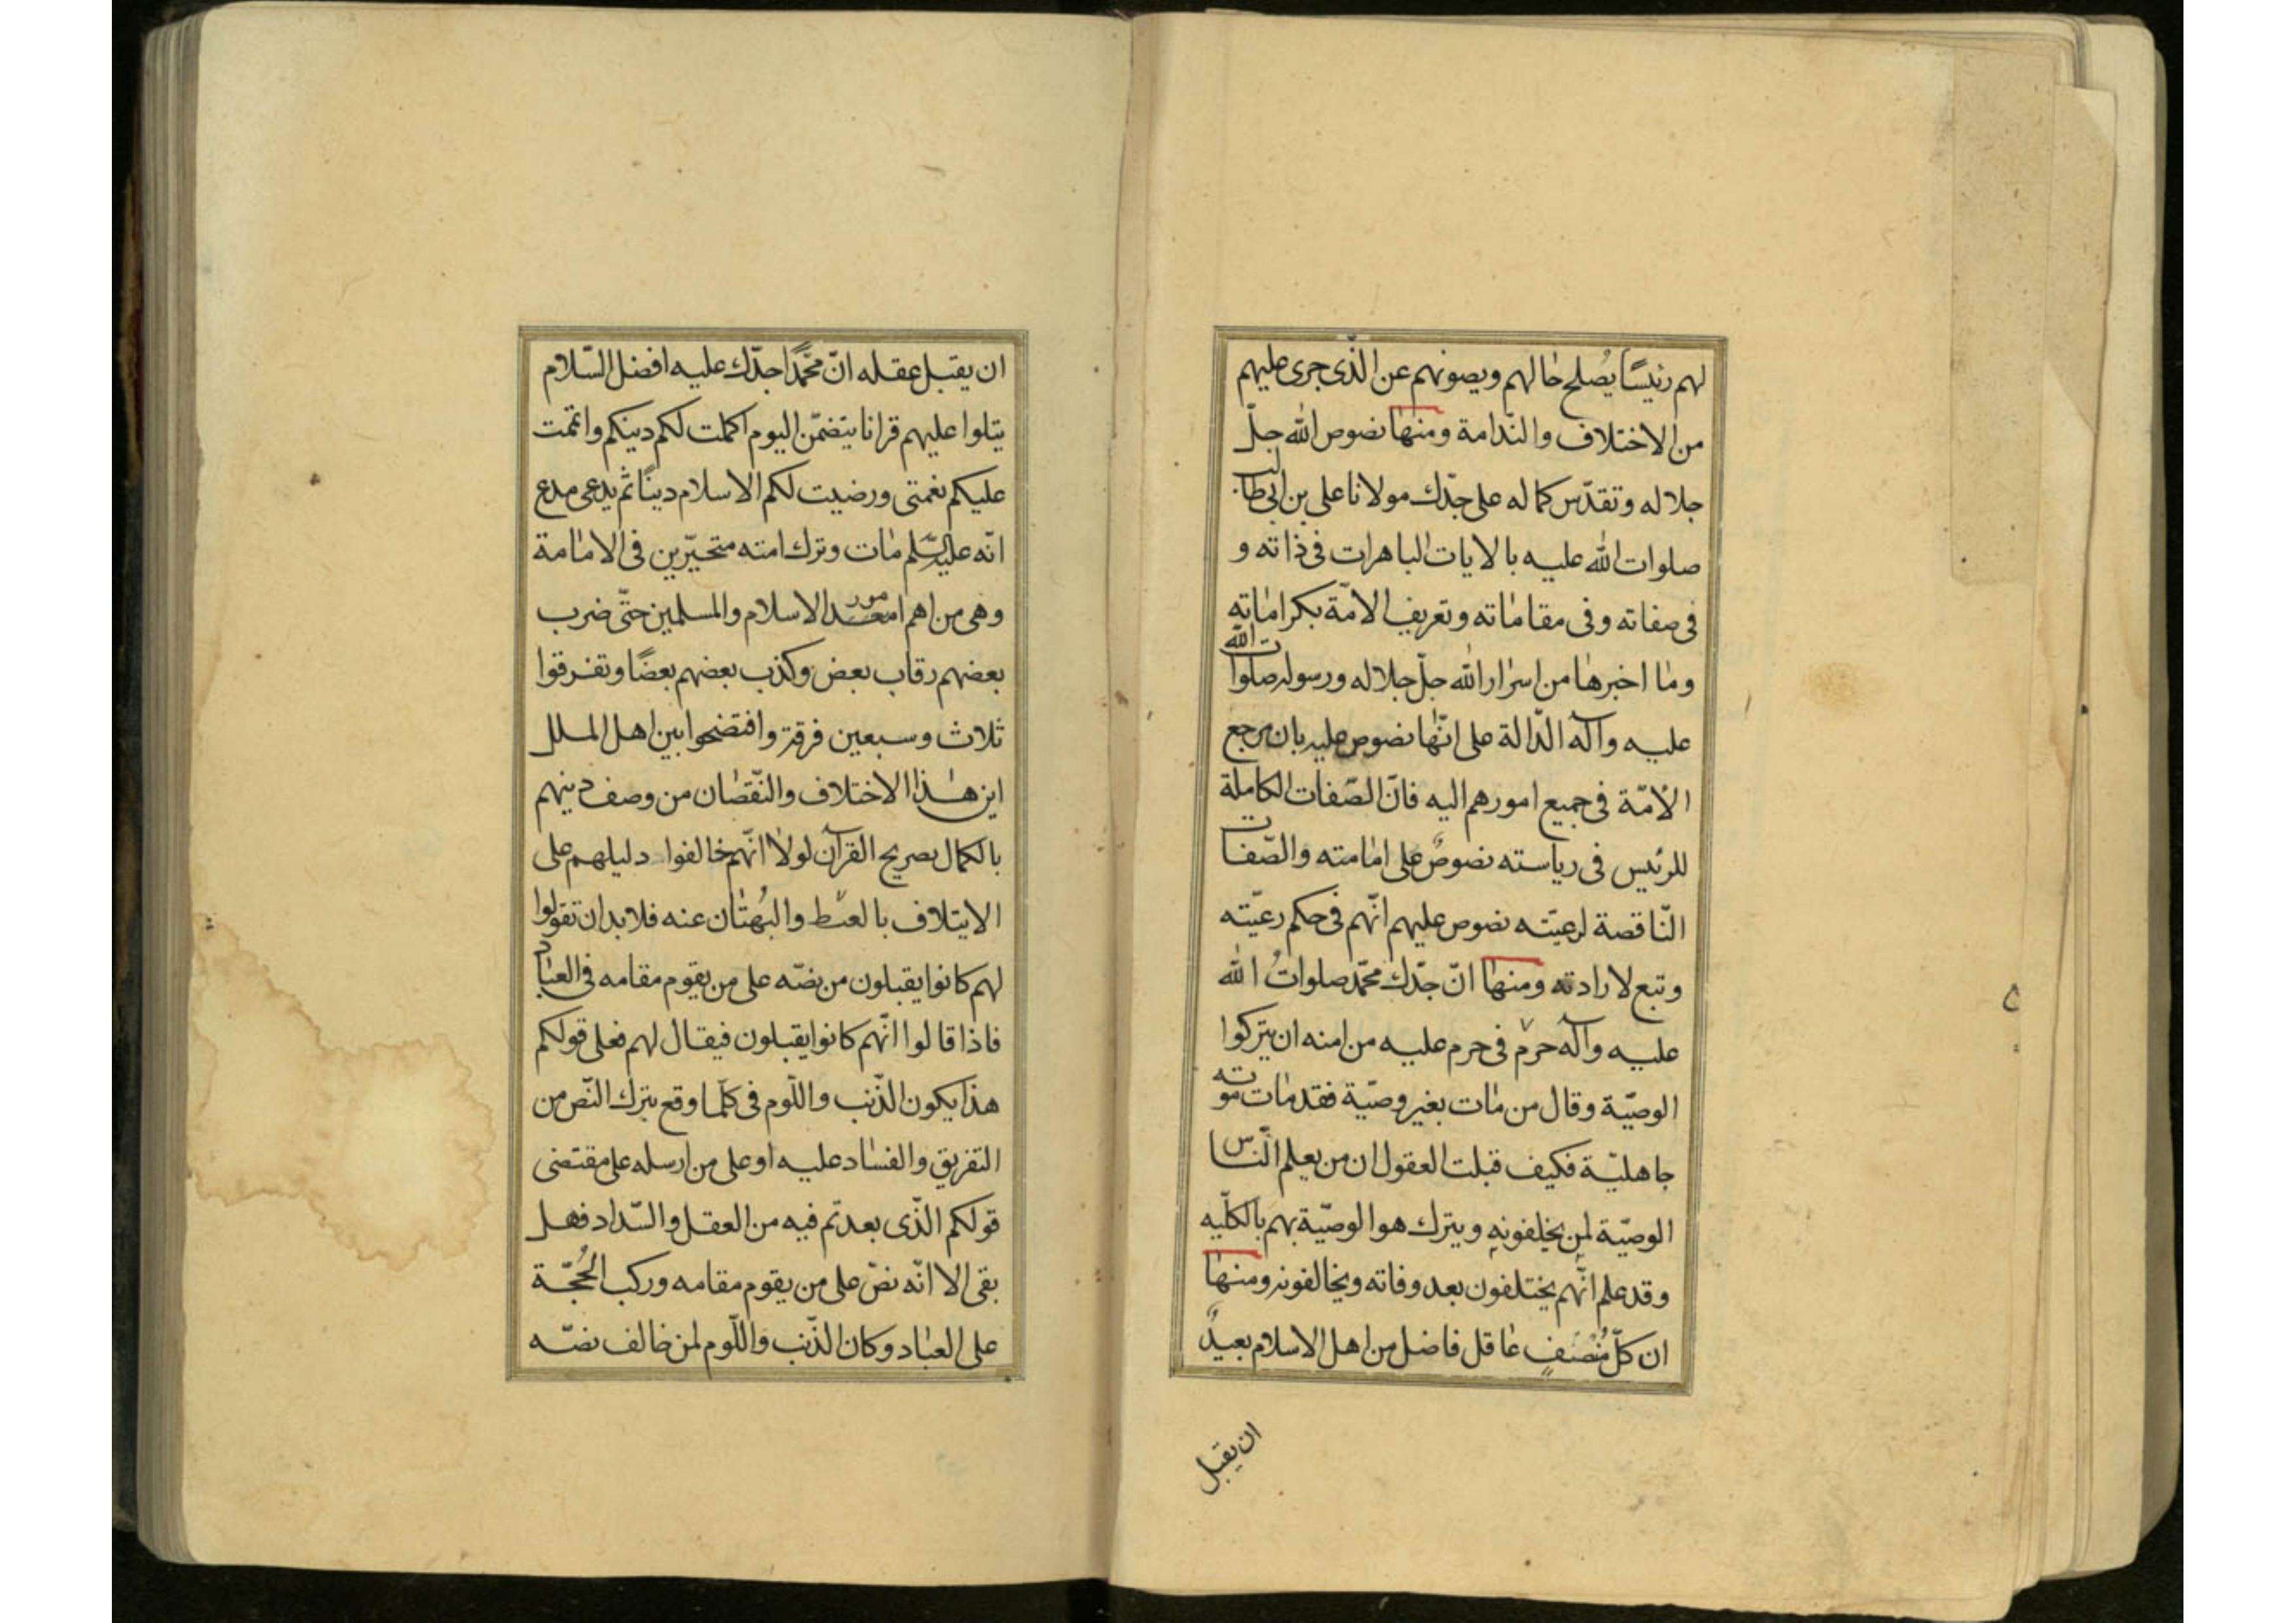 لهم رئيسًا يُصلح حالهم ويصونهم عن الذّى جرى عليهم
من الاختلاف والنّدامة ومنها نصوص الله جلّ
جلاله وتقدّس كماله على جدّك مولانا على بن ابى طالب
صلوات الله عليه بالايات الباهرات فى ذاته و
فى صفاته وفى مقاماته وتعريف الامّة بكراماته
وما اخبرها من اسرار الله جلّ جلاله ورسوله صلوات الله
عليه وآله الدّالة على انّها نصوص عليه بان مرجع
الأمّة فى جميع امورهم اليه فانّ الصّفات الكاملة
للرئيس فى رياسته نصوصٌ على امامته والصّفات
النّاقصة لرعيّته نصوص عليهم انّهم فى حكم رعيّته
وتبع لارادته ومنها انّ جدّك محمّد صلوات الله
عليه وآله حرّم فى حرم عليه من امته ان يتركوا
الوصيّة وقال من مات بغير وصيّة فقد مات موته
جاهليّة فكيف قبلت العقول ان من يعلم النّاس
الوصيّة لمن يخلفونه ويترك هو الوصيّة بهم بالكلّيه
وقد علم انّهم يختلفون بعد وفاته ويخالفونه ومنها
ان كلّ مُنْصَفٍ عاقل فاضل من اهل الاسلام بعيدٌ
ان يقبل
ان يقبل عقله انّ محمّدًا جدّك عليه افضل السّلام
يتلوا عليهم قرانا يتضمّن اليوم اكملت لكم دينكم واتممت
عليكم نعمتى ورضيت لكم الاسلام دينًا ثم يدعى مدع
انّه عليه السّلم مات وترك امته متحيّرين فى الامامة
وهى من اهم امور الاسلام والمسلمين حتّى ضرب
بعضهم رقاب بعض وكذب بعضهم بعضًا وتفرقوا
ثلاث وسبعين فرقة وافتضحوا بين اهل الملل
اين هذا الاختلاف والنّقصان من وصف دينهم
بالكمال بصريح القرآن لولا انّهم خالفوا دليلهم على
الايتلاف بالعنط والبُهتان عنه فلا بد ان تقولوا
لهم كانوا يقبلون من نصّه على من يقوم مقامه فى العباد
فاذا قالوا انّهم كانوا يقبلون فيقال لهم فعلى قولكم
هذا يكون الذّنب واللّوم فى كلّما وقع بترك النّص من
التفريق والفساد عليه او على من ارسله على مقتضى
قولكم الذّى بعدتم فيه من العقل والسّداد فهل
بقى الا انّه نصّ على من يقوم مقامه وركب الحُجّة
على العباد وكان الذّنب واللّوم لمن خالف نصّه